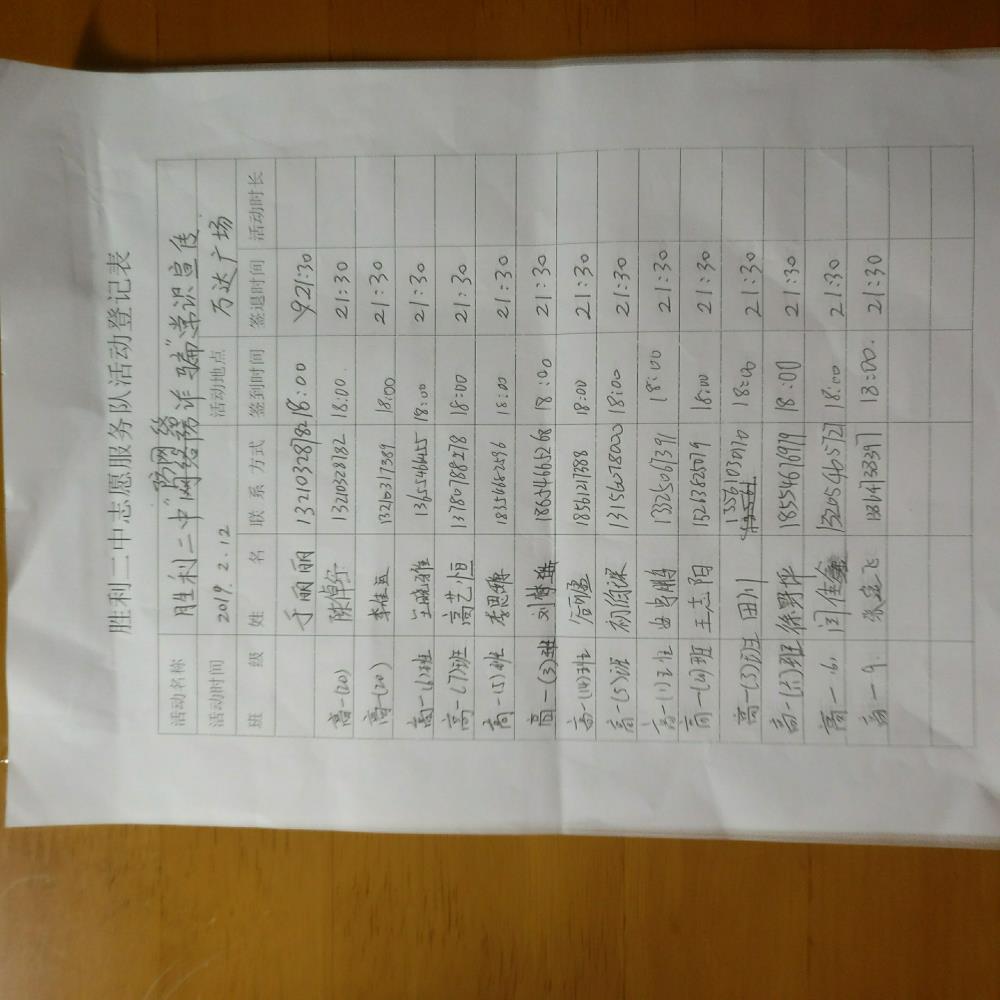 胜利二中志愿服务队活动登记表
活动名称 胜利二中"防网络诈骗"常识宣传
活动时间 2019.2.12 活动地点 万达广场
班级 姓名 联系方式 签到时间 签退时间 活动时长
于丽丽 13210328782 18:00 21:30
高一(20) 陈倬尔 13210328782 18:00 21:30
高一(20) 13210317389 18:00 21:30
高一(6)班 王晓雅 13655466455 18:00 21:30
高一(7)班 高艺恒 13780788278 18:00 21:30
高一(5)班 李思缘 18354682596 18:00 21:30
高一(3)班 刘梦琳 18654665268 18:00 21:30
高一(14)班 18:00 21:30
高一(5)班 13156078000 18:00 21:30
高一(1)班 13325067391 18:00 21:30
高一(4)班 王志阳 15213825079 18:00 21:30
高一(3)班 田川 13561030170 18:00 21:30
高一(六)班 徐野坪 18554676979 18:00 21:30
高一.6. 闫佳鑫 18:00 21:30
高一.9. 18:00. 21:30